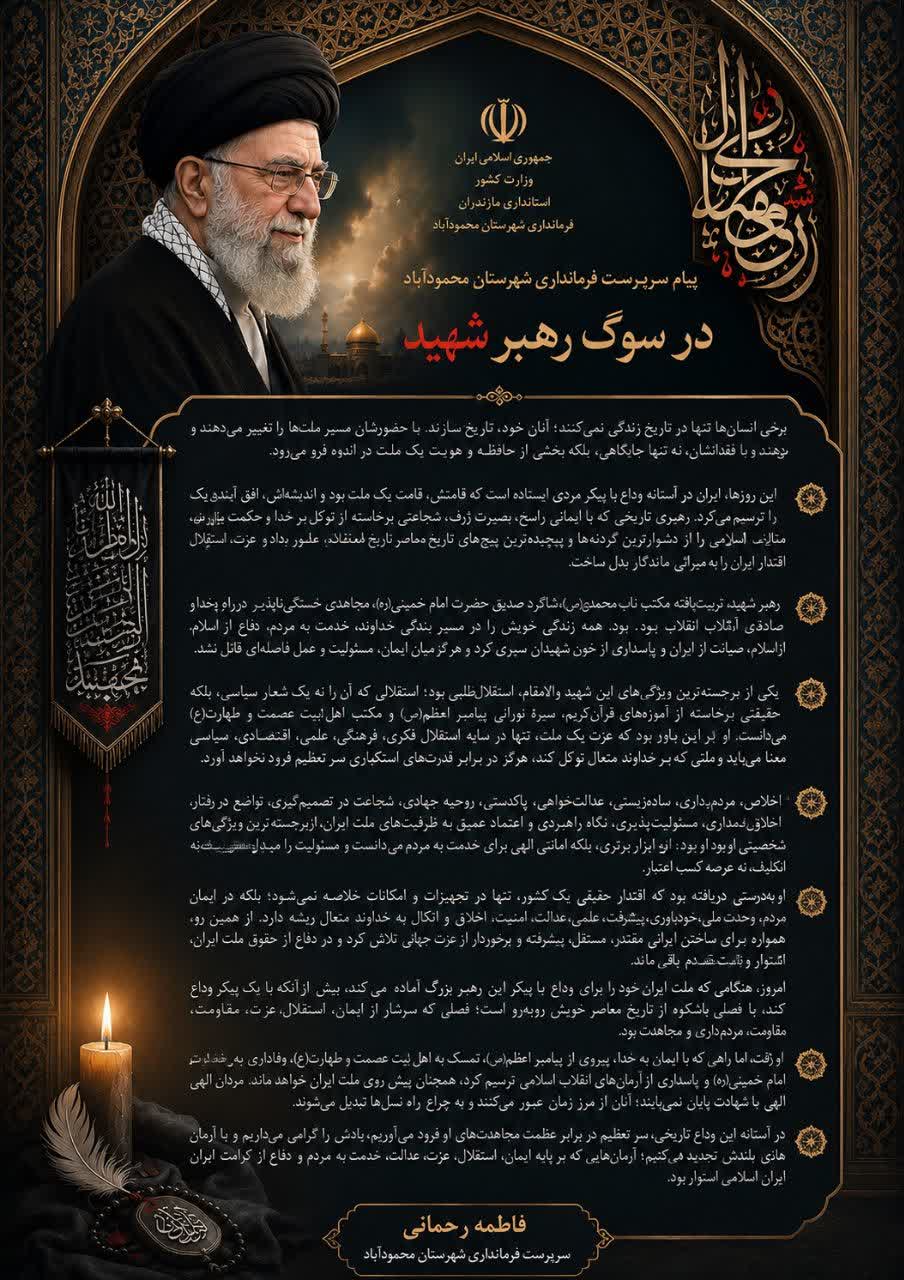 جمهوری اسلامی ایران
وزارت کشور
استانداری مازندران
فرمانداری شهرستان محمودآباد
پیام سرپرست فرمانداری شهرستان محمودآباد
در سوگ رهبر شهید
برخی انسان‌ها تنها در تاریخ زندگی نمی‌کنند؛ آنان خود، تاریخ سازند. با حضورشان مسیر ملت‌ها را تغییر می‌دهند و
و با فقدانشان، نه تنها جایگاهی، بلکه بخشی از حافظه و هویت یک ملت در اندوه فرو می‌رود.
این روزها، ایران در آستانه وداع با پیکر مردی ایستاده است که قامتش، قامت یک ملت بود و اندیشه‌اش، افق آینده یک
را ترسیم می‌کرد. رهبری تاریخی که با ایمانی راسخ، بصیرت ژرف، شجاعتی برخاسته از توکل بر خدا و حکمت
اسلامی را از دشوارترین گردنه‌ها و پیچیده‌ترین پیچ‌های تاریخ معاصر تاریخ عبور داد و عزت، استقلال
اقتدار ایران را به میراثی ماندگار بدل ساخت.
رهبر شهید، تربیت‌یافته مکتب ناب محمدی(ص)، شاگرد صدیق حضرت امام خمینی(ره)، مجاهدی خستگی‌ناپذیر در راه خدا و
صادق انقلاب بود. بود. همه زندگی خویش را در مسیر بندگی خداوند، خدمت به مردم، دفاع از اسلام،
ازاسلام، صیانت از ایران و پاسداری از خون شهیدان سپری کرد و هرگز میان ایمان، مسئولیت و عمل فاصله‌ای قائل نشد.
یکی از برجسته‌ترین ویژگی‌های این شهید والامقام، استقلال‌طلبی بود؛ استقلالی که آن را نه یک شعار سیاسی، بلکه
حقیقتی برخاسته از آموزه‌های قرآن‌کریم، سیره نورانی پیامبر اعظم(ص) و مکتب اهل‌بیت عصمت و طهارت(ع)
می‌دانست. او بر این باور بود که عزت یک ملت، تنها در سایه استقلال فکری، فرهنگی، علمی، اقتصادی، سیاسی
معنا می‌یابد و ملتی که بر خداوند متعال توکل کند، هرگز در برابر قدرت‌های استکباری سر تعظیم فرود نخواهد آورد.
اخلاص، مردم‌داری، ساده‌زیستی، عدالت‌خواهی، پاکدستی، روحیه جهادی، شجاعت در تصمیم‌گیری، تواضع در رفتار،
اخلاق‌مداری، مسئولیت‌پذیری، نگاه راهبردی و اعتماد عمیق به ظرفیت‌های ملت ایران، ازبرجسته‌ترین ویژگی‌های
شخصیتی او بود او بود: ابزار برتری، بلکه امانتی الهی برای خدمت به مردم می‌دانست و مسئولیت را نه
نه عرصه کسب اعتبار.
او به‌درستی دریافته بود که اقتدار حقیقی یک کشور، تنها در تجهیزات و امکانات خلاصه نمی‌شود؛ بلکه در ایمان
مردم، وحدت ملی، خودباوری، پیشرفت، علمی، عدالت، امنیت، اخلاق و اتکال به خداوند متعال ریشه دارد. از همین رو،
همواره برای ساختن ایرانی مقتدر، مستقل، پیشرفته و برخوردار از عزت جهانی تلاش کرد و در دفاع از حقوق ملت ایران،
استوار و باقی ماند.
امروز، هنگامی که ملت ایران خود را برای وداع با پیکر این رهبر بزرگ آماده می کند، بیش از آنکه با یک پیکر وداع
کند، با فصلی باشکوه از تاریخ معاصر خویش روبه‌رو است؛ فصلی که سرشار از ایمان، استقلال، عزت، مقاومت،
مقاومت، مردم‌داری و مجاهدت بود.
او رفت، اما راهی که با ایمان به خدا، پیروی از پیامبر اعظم(ص)، تمسک به اهل بیت عصمت و طهارت(ع)، وفاداری به
امام خمینی(ره) و پاسداری از آرمان‌های انقلاب اسلامی ترسیم کرد، همچنان پیش روی ملت ایران خواهد ماند. مردان الهی
الهی با شهادت پایان نمی‌یابند؛ آنان از مرز زمان عبور می‌کنند و به چراغ راه نسل‌ها تبدیل می‌شوند.
در آستانه این وداع تاریخی، سر تعظیم در برابر عظمت مجاهدت‌های او فرود می‌آوریم، یادش را گرامی می‌داریم و با آرمان
های بلندش تجدید می‌کنیم؛ آرمان‌هایی که بر پایه ایمان، استقلال، عزت، عدالت، خدمت به مردم و دفاع از کرامت ایران
ایران اسلامی استوار بود.
فاطمه رحمانی
سرپرست فرمانداری شهرستان محمودآباد